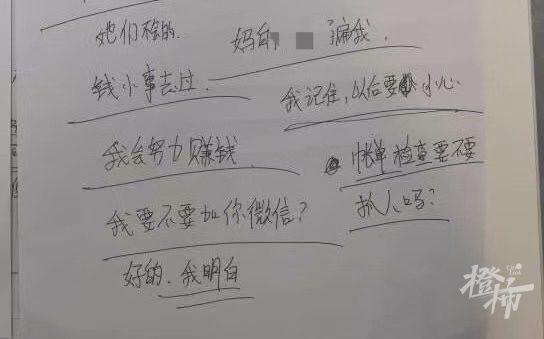 她们 的.
妈的 骗我.
钱小事去过.
我记住,以后要小心
我会努力赚钱
帐单检查要不要
抓人吗?
我要不要加你微信?
好的.我明白
橙柿